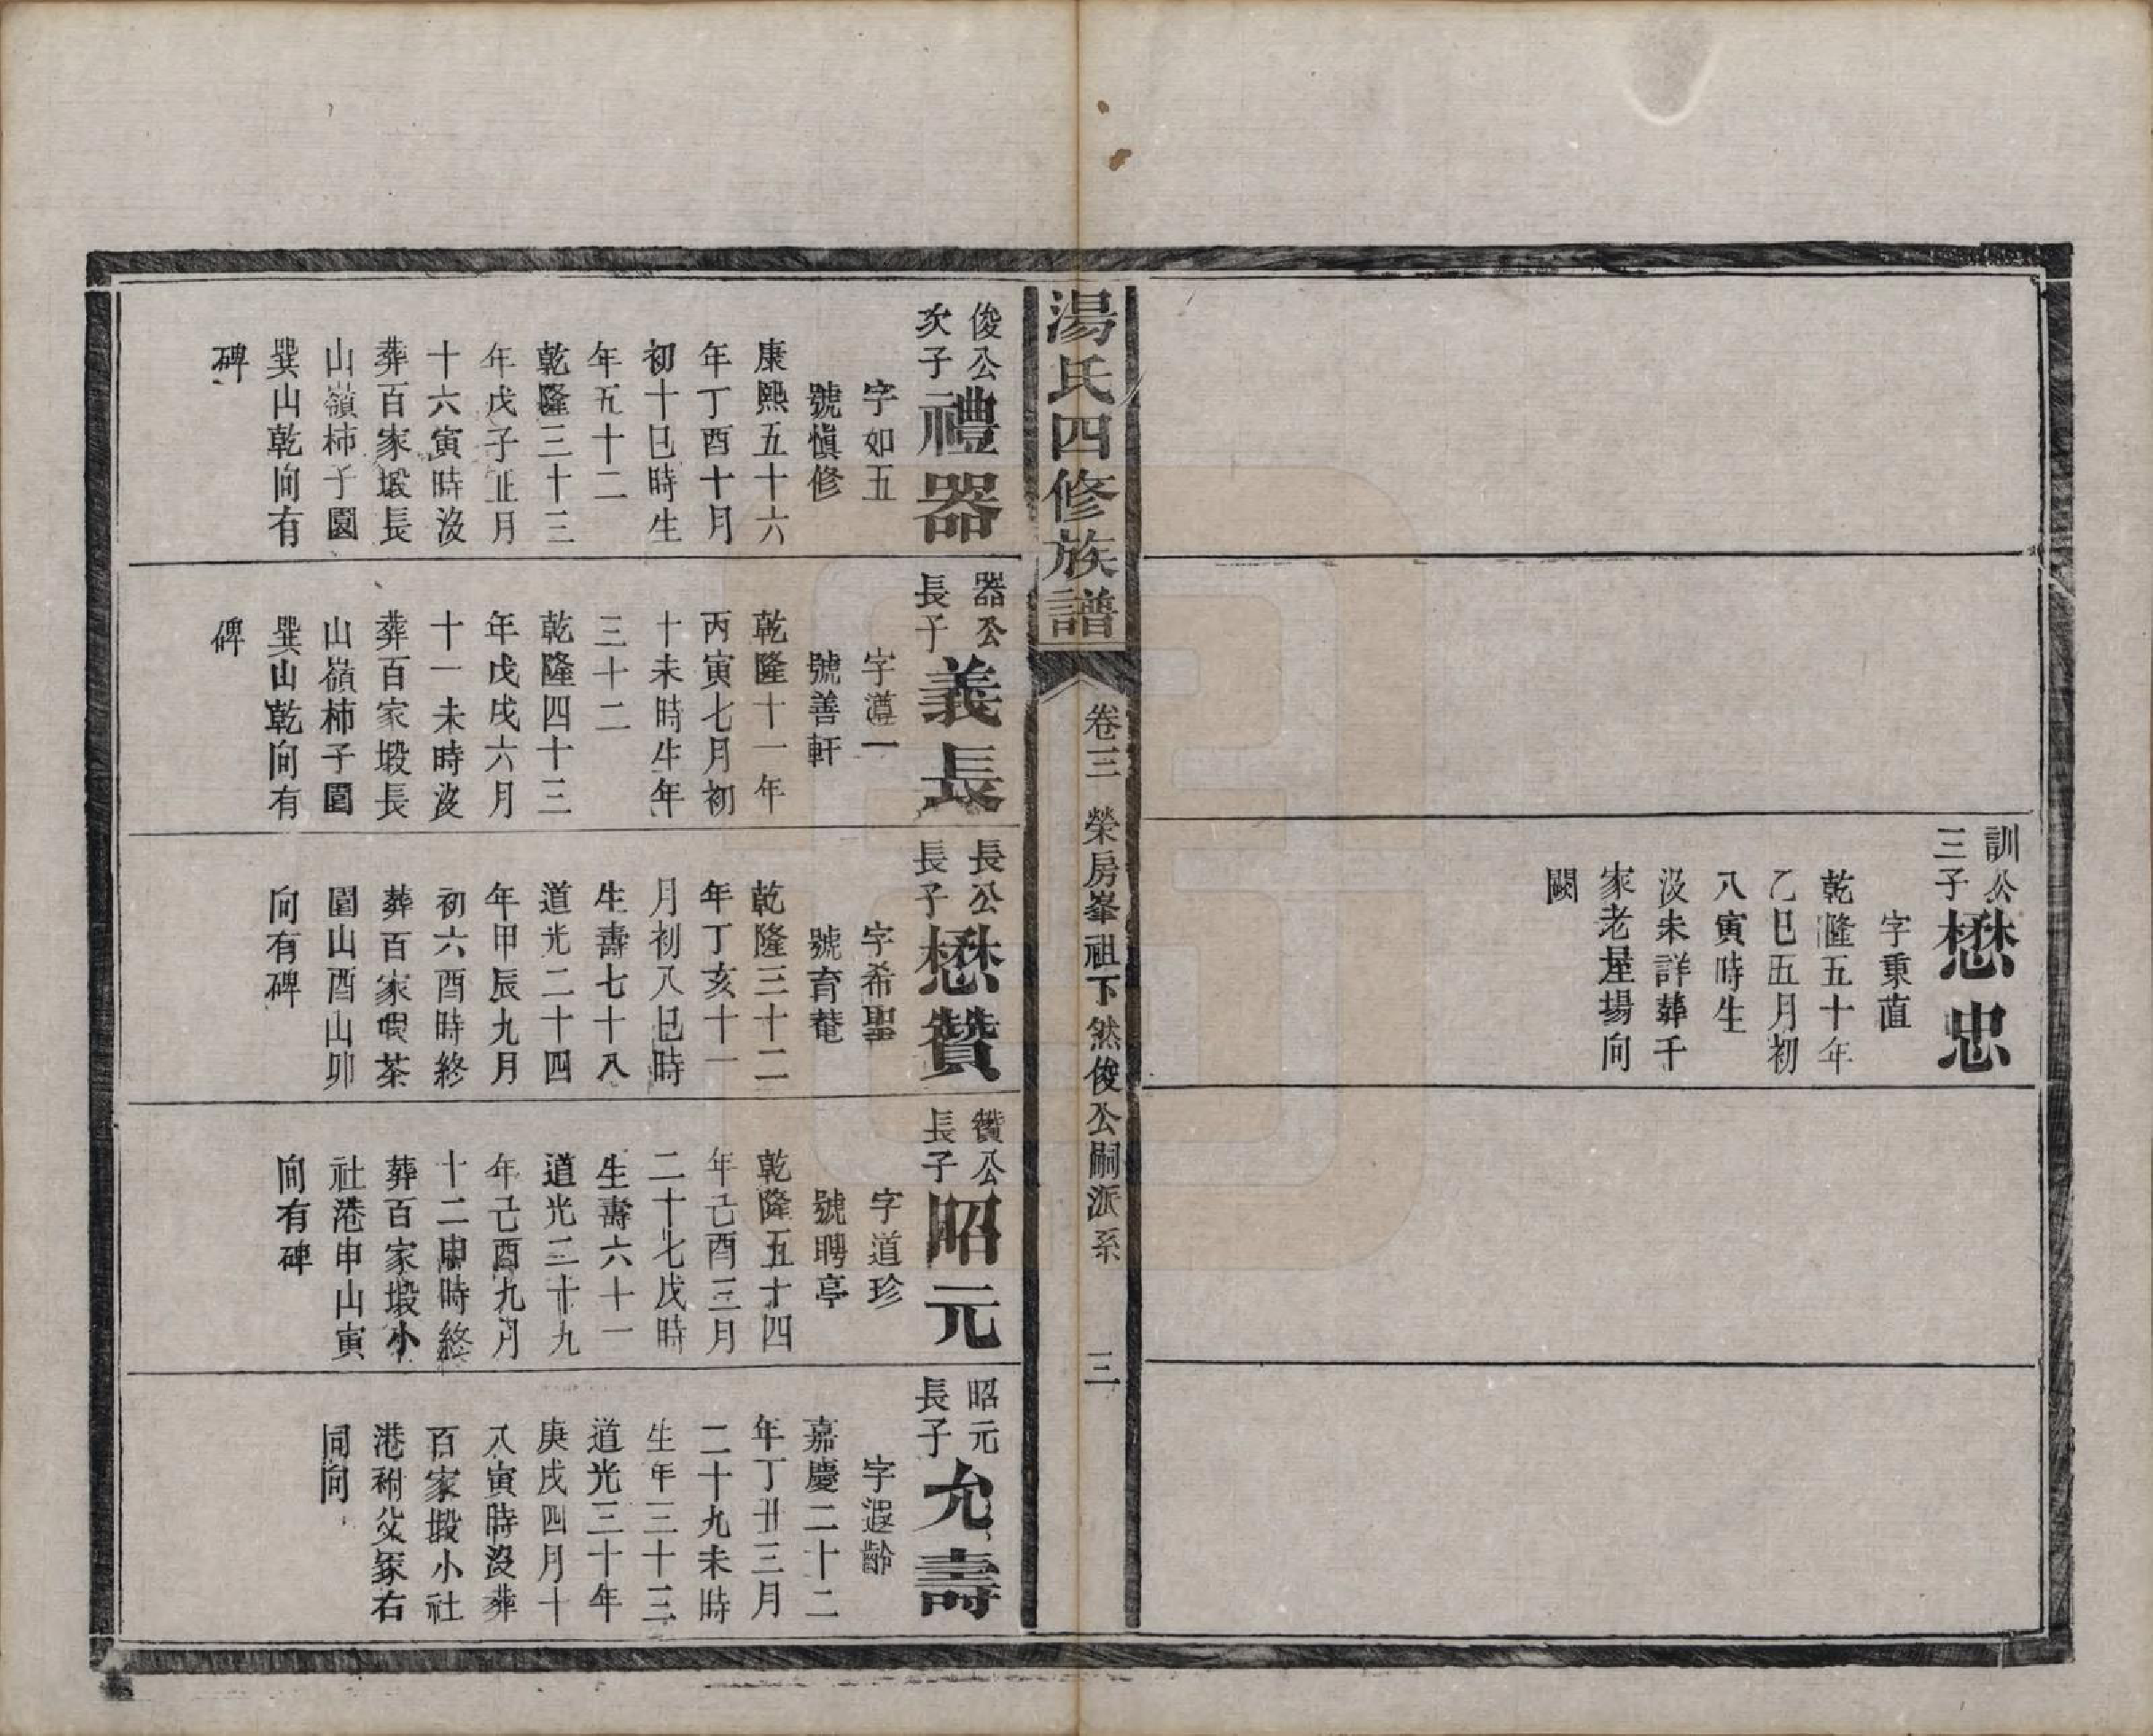 訓公
三子
懋忠
字秉直
乾隆五十年
乙巳五月初
八寅時生
沒未詳葬千
家老屋場向
闕
湯氏四修族譜
卷三
榮房峯祖下然俊公嗣派系
三
俊公
次子
禮器
字如五
號慎修
康熙五十六
年丁酉十月
初十巳時生
年五十二
乾隆三十三
年戊子正月
十六寅時沒
葬百家塅長
山嶺柿子園
巽山乾向有
碑
器公
長子
義長
字遵一
號善軒
乾隆十一年
丙寅七月初
十未時生年
三十二
乾隆四十三
年戊戌六月
十一未時沒
葬百家塅長
山嶺柿子園
巽山乾向有
碑
長公
長子
懋贊
字希聖
號育菴
乾隆三十二
年丁亥十一
月初八巳時
生壽七十八
道光二十四
年甲辰九月
初六酉時終
葬百家塅茶
園山酉山卯
向有碑
贊公
長子
昭元
字道珍
號聘亭
乾隆五十四
年己酉三月
二十七戌時
生壽六十一
道光二十九
年己酉九月
十二申時終
葬百家塅小
社港申山寅
向有碑
昭元
長子
允壽
字遐齡
嘉慶二十二
年丁丑三月
二十九未時
生年三十三
道光三十年
庚戌四月十
八寅時沒葬
百家塅小社
港祔父冢右
同向